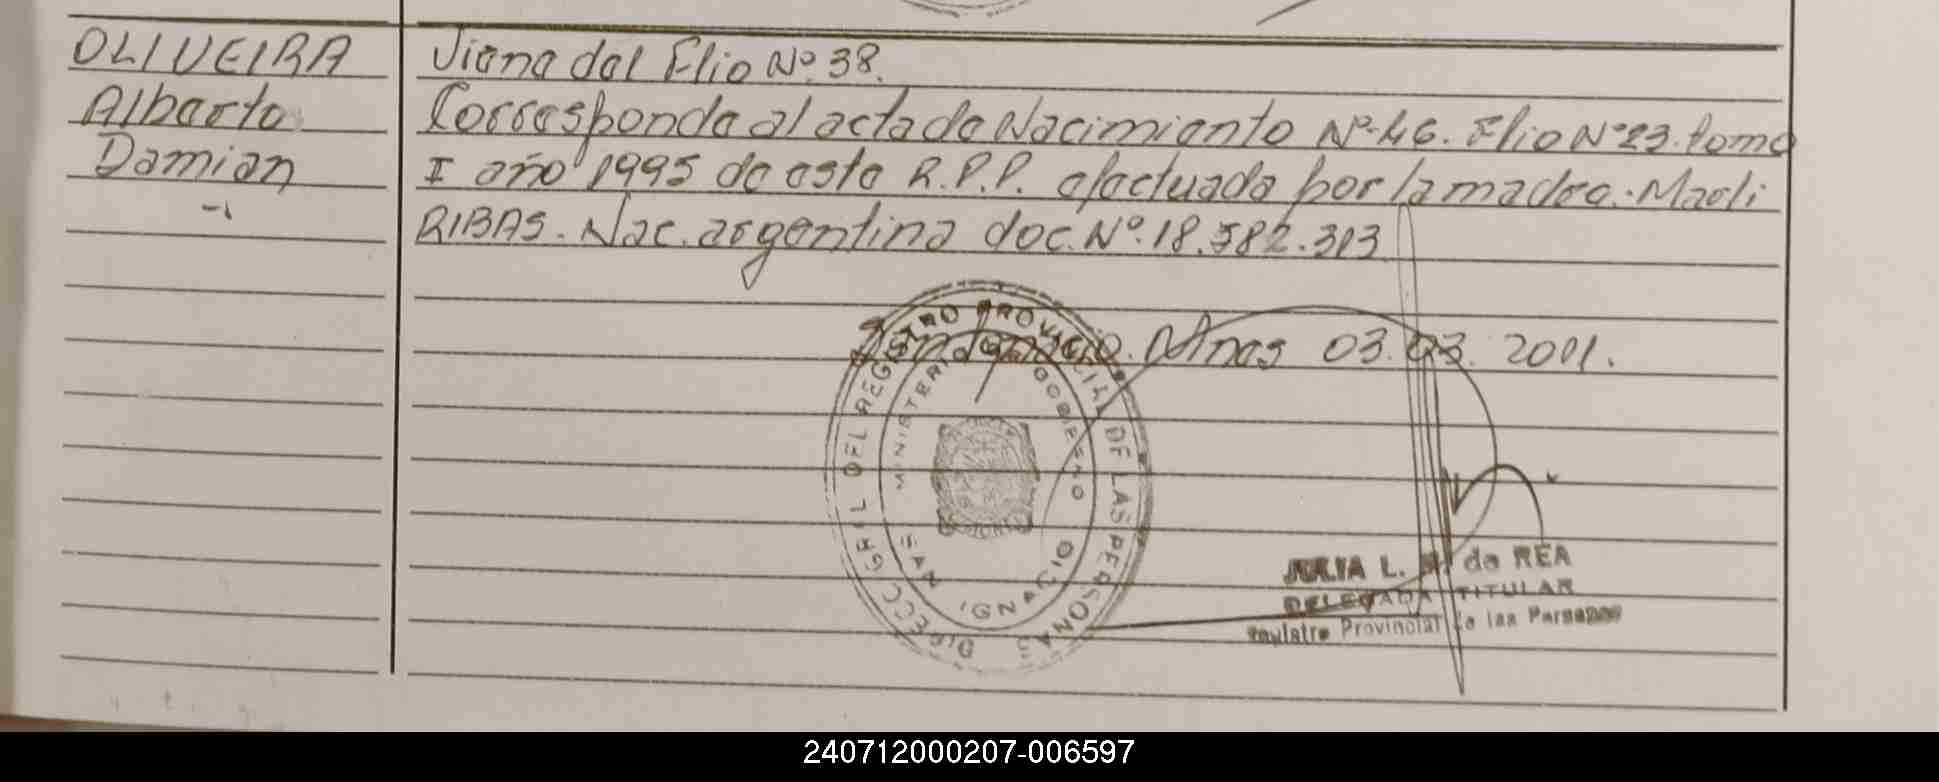 OLIVEIRA
Alberto
Damian
Viene del Flio Nº 38.
Corresponde al acta de Nacimiento Nº 46. Flio Nº 23. tomo
I año 1995 de este R.P.P. efectuada por la madre. Marli
RIBAS. Nac. argentina doc. Nº 18.582.313
San Ignacio. Mnes 03. 03. 2001.
DIRECC GRAL DEL REGISTRO PROVINCIAL DE LAS PERSONAS
MINISTERIO GOBIERNO
SAN IGNACIO
JULIA L. de REA
DELEGADA TITULAR
Registro Provincial de las Personas
240712000207-006597